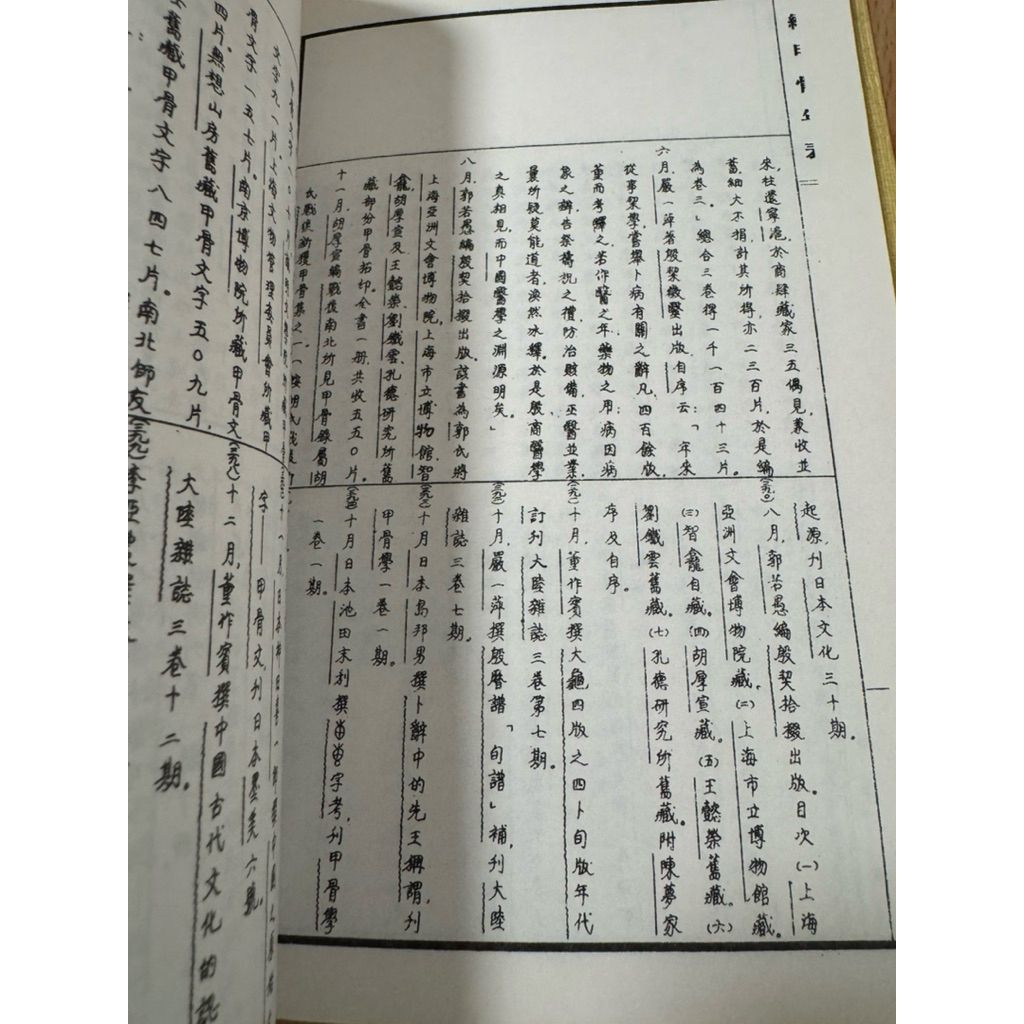 來往遼寧滬於商肆藏家三五偶見兼收並
蓄細大不捐計其所得亦二三百片，於是編
為卷三」總合三卷得一千一百四十三片。
六月，嚴一萍著殷契徵毉出版。自序云：「年來
從事契學嘗舉卜病有關之辭凡四百餘版，
董而考繹之，若作毉之年，藥物之用，病因病
象之辭，告祭禱祝之禮，防治賅備，巫毉並業，
曩所疑莫能道者，渙然冰釋。於是殷商毉學
之真相見，而中國毉學之淵源明矣。」
八月，郭若愚編殷契拾掇出版。該書為郭氏將
上海亞洲文會博物院，上海市立博物館，智
龕，胡厚宣及王懿榮，劉鐵雲，孔德研究所舊
藏部份甲骨拓印。全書一冊，共收五五〇片。
十一月，胡厚宣編戰後南北所見甲骨錄，屬胡
氏戰後新獲甲骨集之一
起源，刊日本文化三十期。
(三九〇)八月，郭若愚編殷契拾掇出版。目次(一)上海
亞洲文會博物院藏。(二)上海市立博物館藏。
(三)智龕自藏。(四)胡厚宣藏。(五)王懿榮舊藏。(六)
劉鐵雲舊藏。(七)孔德研究所舊藏。附陳夢家
序及自序。
(三九一)十月，董作賓撰大龜四版之四卜旬版年代
訂刊大陸雜誌三卷第七期。
(三九二)十月，嚴一萍撰殷曆譜「旬譜」補，刊大陸
雜誌三卷七期。
(三九三)十月日本島邦男撰卜辭中的先王稱謂，刊
甲骨學一卷一期。
(三九四)十月日本池田末利撰字考，刊甲骨學
一卷一期。
文字九一片。上海文物管理委員會所藏甲
骨文字一五七片。南京博物院所藏甲骨文
四片。無想山房舊藏甲骨文字五〇九片，
舊藏甲骨文字八四七片。南北師友
字——甲骨文，刊日本墨美六號。
十二月，董作賓撰中國古代文化的認
大陸雜誌三卷十二期。